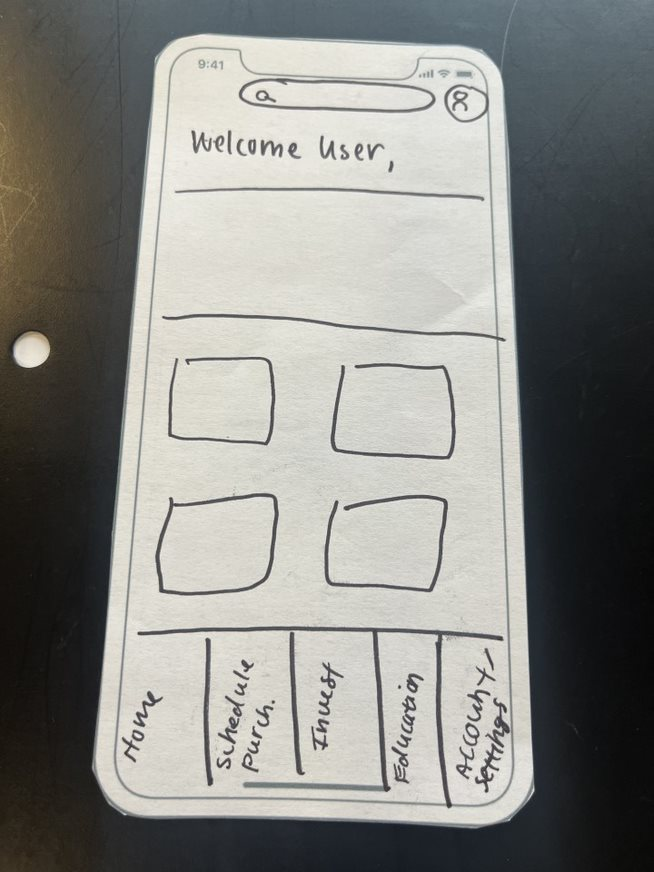 9:41
Welcome User,
Home
Schedule
Purch.
Invest
Education
Account
Settings